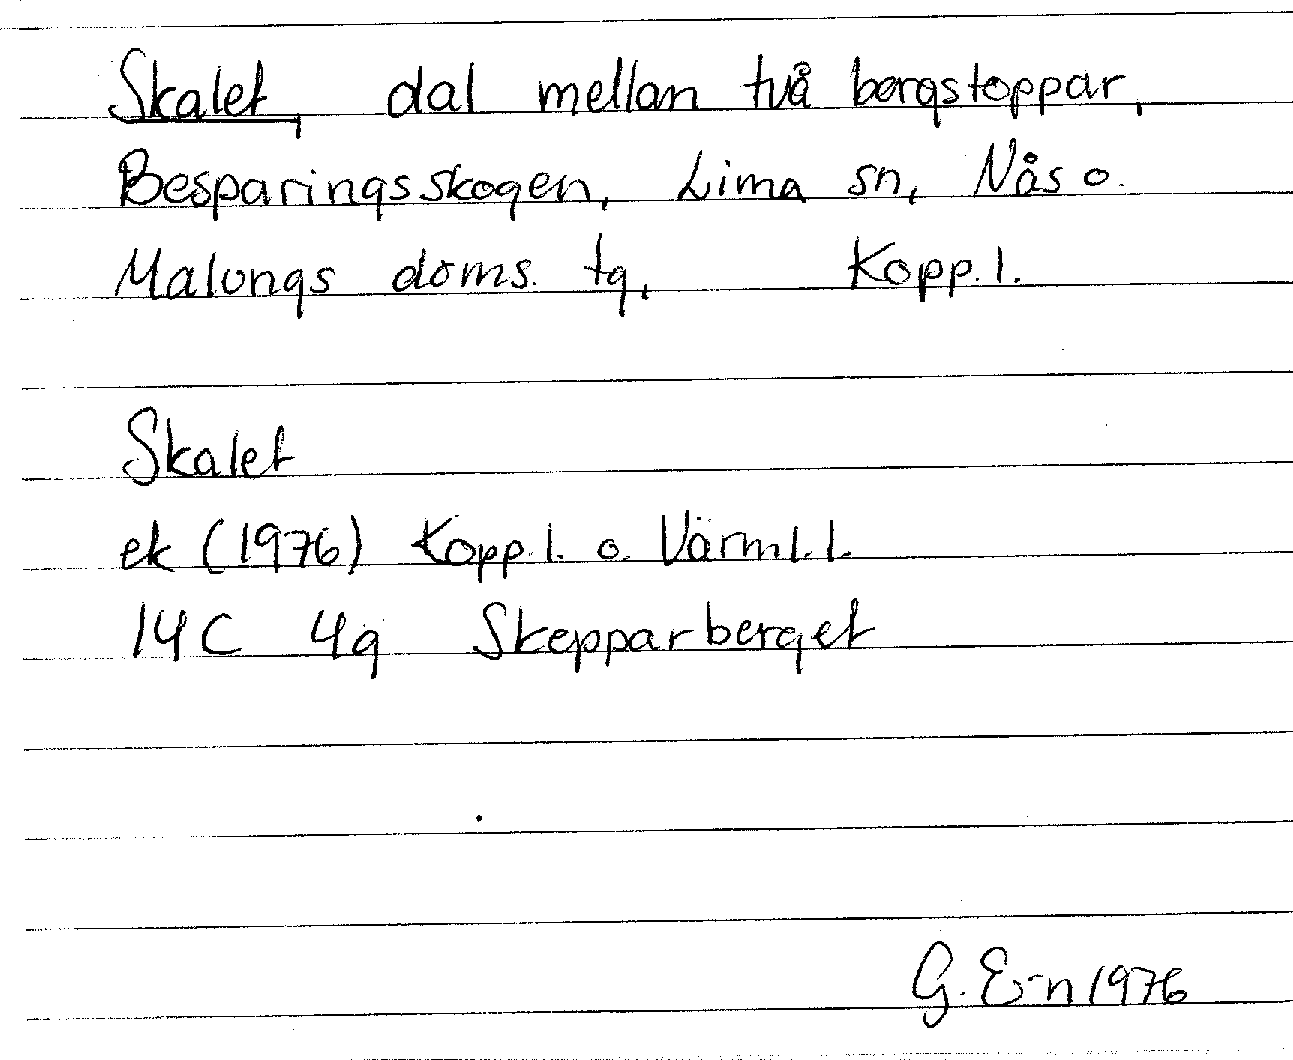 Skalet, dal mellan två bergstoppar,
Besparingsskogen, Lima sn, Nås o.
Malungs doms. tg, Kopp.l.
Skalet
ek (1976) Kopp.l. o. Värml.l.
14C 4g Skepparberget
G. E-n 1976